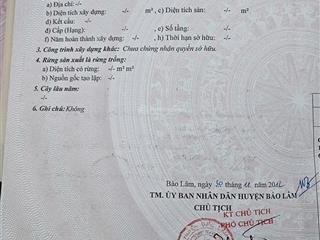 a) Địa chỉ:-/-
b) Diện tích xây dựng: -/- m², c) Diện tích sàn: -/-
d) Kết cấu: -/-
đ) Cấp (Hạng): -/- e) Số tầng: -/-
f) Năm hoàn thành xây dựng: -/- h) Thời hạn sở hữu: -/-
3. Công trình xây dựng khác: Chưa chứng nhận quyền sở hữu.
4. Rừng sản xuất là rừng trồng:
a) Diện tích có rừng: -/- m²
b) Nguồn gốc tạo lập: -/-
5. Cây lâu năm:
-/-
6. Ghi chú: Không
Bảo Lâm, ngày 20 tháng 11 năm 2012
TM. ỦY BAN NHÂN DÂN HUYỆN BẢO LÂM
CHỦ TỊCH
KT CHỦ TỊCH
PHÓ CHỦ TỊCH